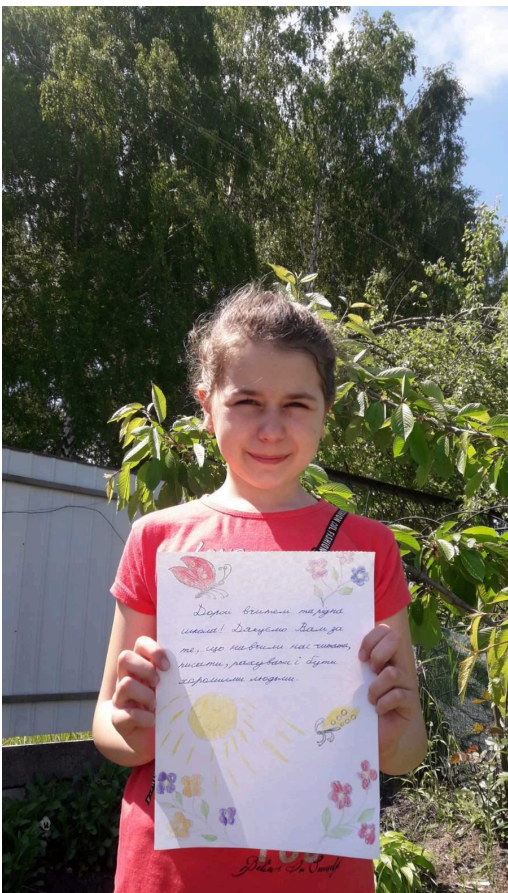 Дорогі вчителі та рідна
школа! Дякуємо Вам за
те, що навчили нас читати,
писати, рахувати і бути
хорошими людьми